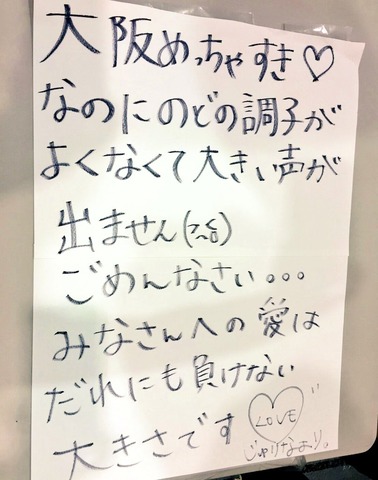 大阪めっちゃすき♡
なのにのどの調子が
よくなくて大きい声が
出ません
ごめんなさい。。。
みなさんへの愛は
だれにも負けない
大きさです
LOVE
じゅりなより。